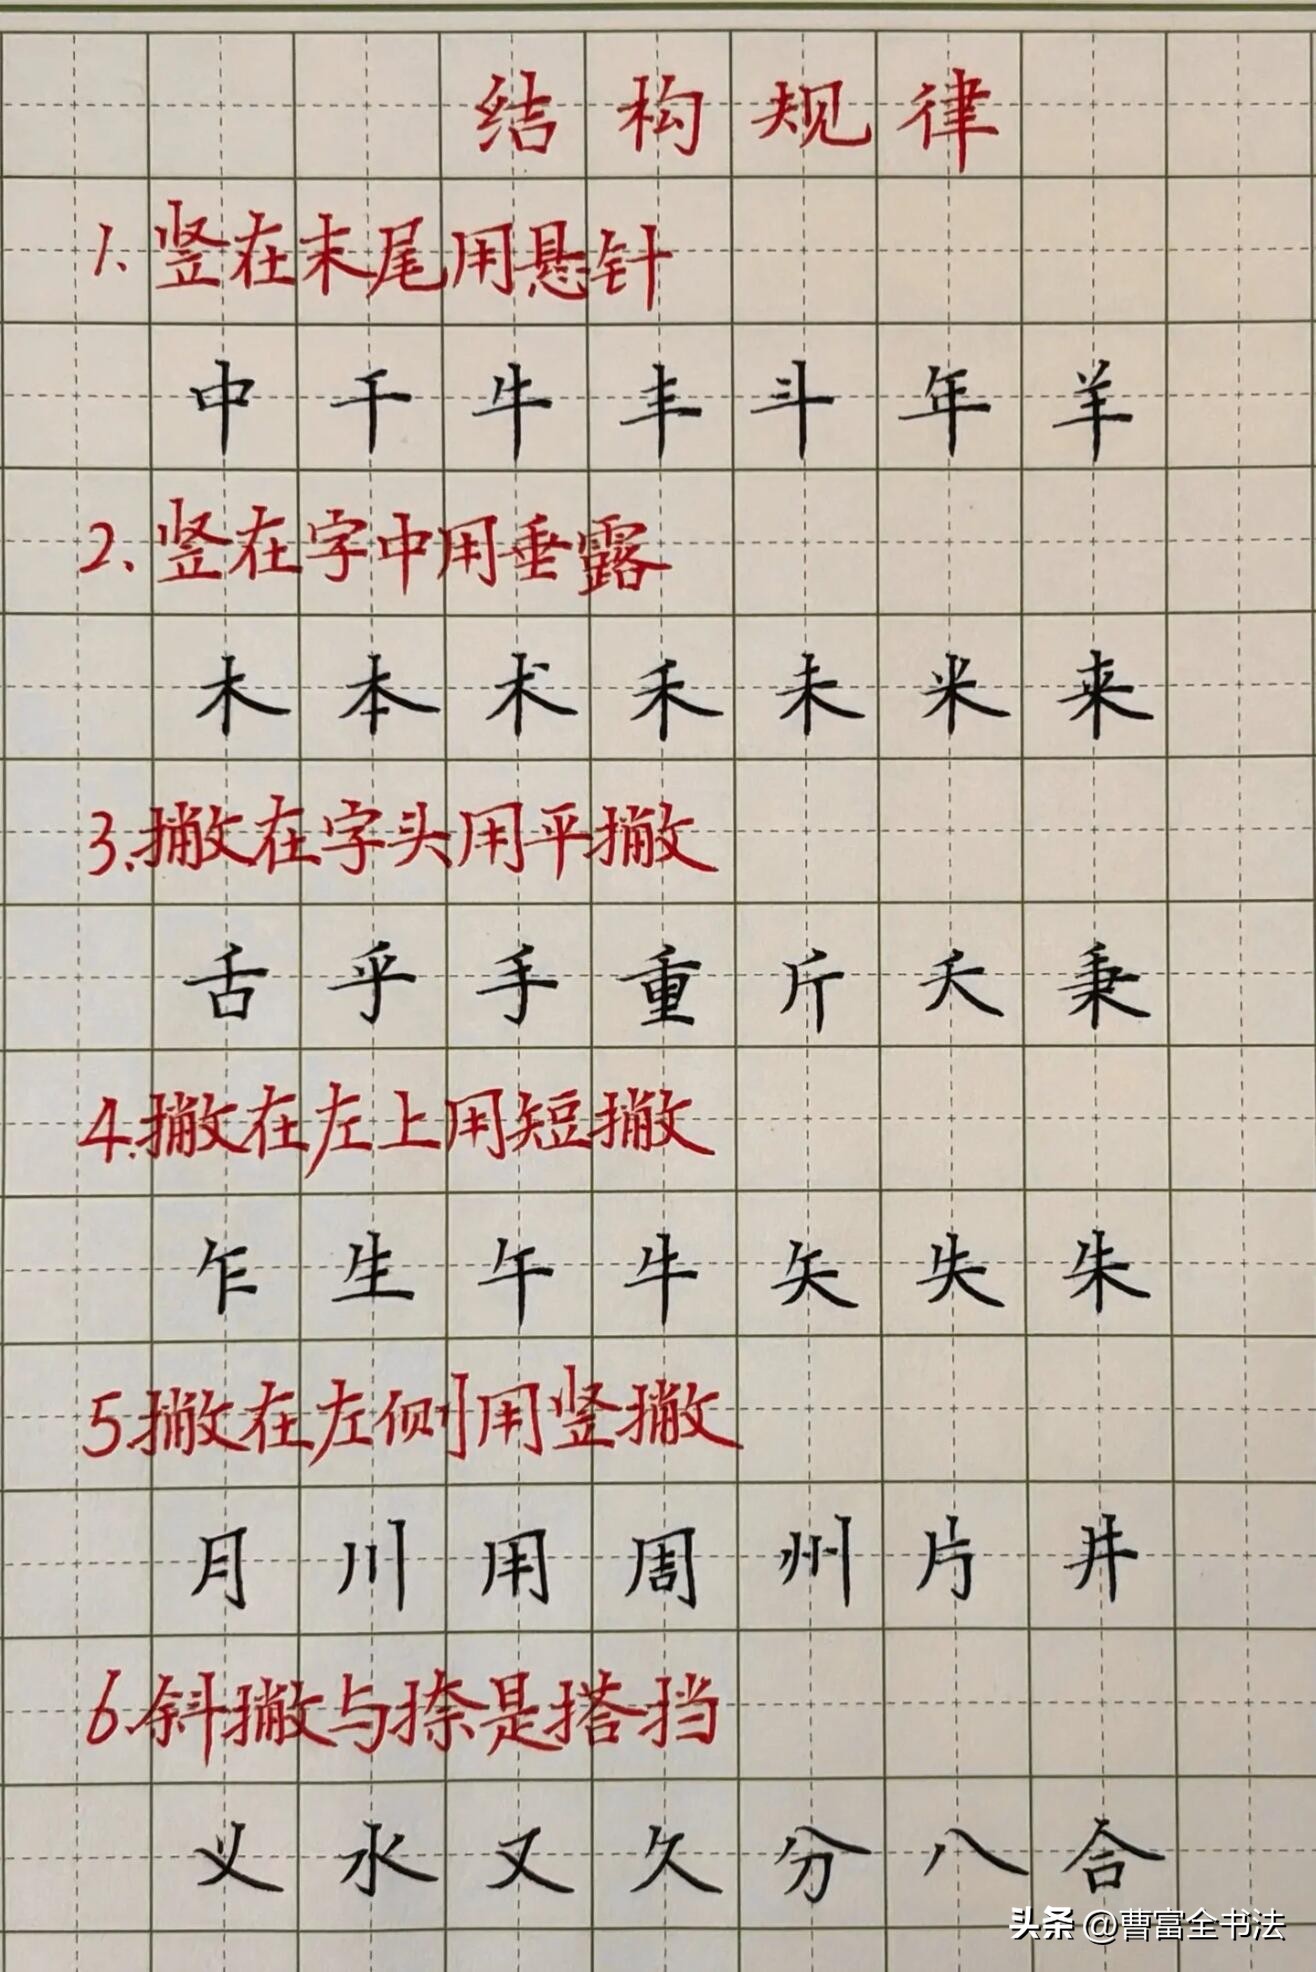 结构规律
1、竖在末尾用悬针
中 干 牛 丰 斗 年 羊
2、竖在字中用垂露
木 本 术 禾 未 米 来
3、撇在字头用平撇
舌 乎 手 重 斤 夭 秉
4、撇在左上用短撇
乍 生 午 牛 矢 失 朱
5、撇在左侧用竖撇
月 川 用 周 州 片 井
6、斜撇与捺是搭挡
义 水 又 久 分 八 合
头条 @曹富全书法